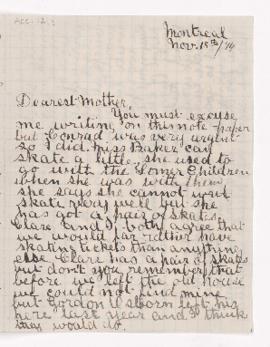 Montreal
Nov. 15th/14
Dearest Mother,
You must excuse
me writing on this note paper
but Conrad was very urgent
so I did. Miss Baker can
skate a little, she used to
go with the Comer Children
when she was with them
she says she cannot
skate very well but she
has got a pair of skates.
Clare and I both agree that
we would far rather have
skating tickets than anything
else Clare has a pair of skates
but don't you remember that
before we left the old house
we could not find mine
but Gordon left his
here last year and I think
they would do.